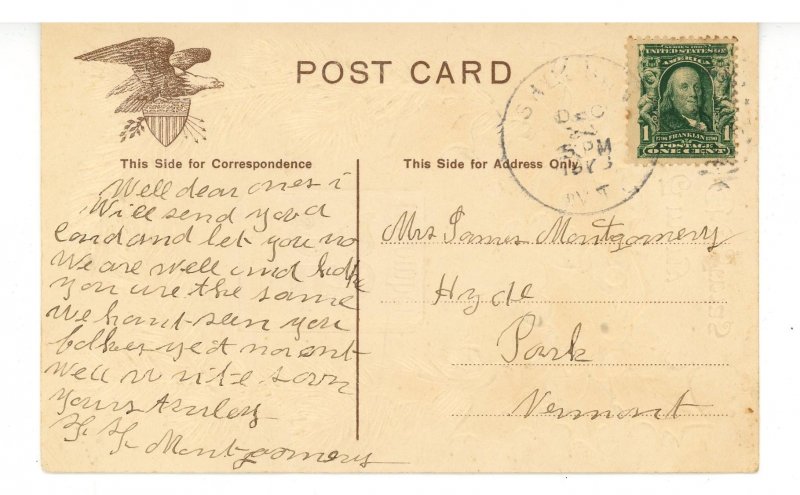 POST CARD
This Side for Correspondence
This Side for Address Only
SERIES 1902
UNITED STATES OF
AMERICA
1 FRANKLIN 1
POSTAGE
ONE CENT
DEC
22
5 PM
VT
Well dear ones i
Will send you a
Card and let you no
We are well and hope
you are the same
We hant seen you
yet
Well write soon
Yours
Montgomery
Mrs James Montgomery
Hyde
Park
Vermont